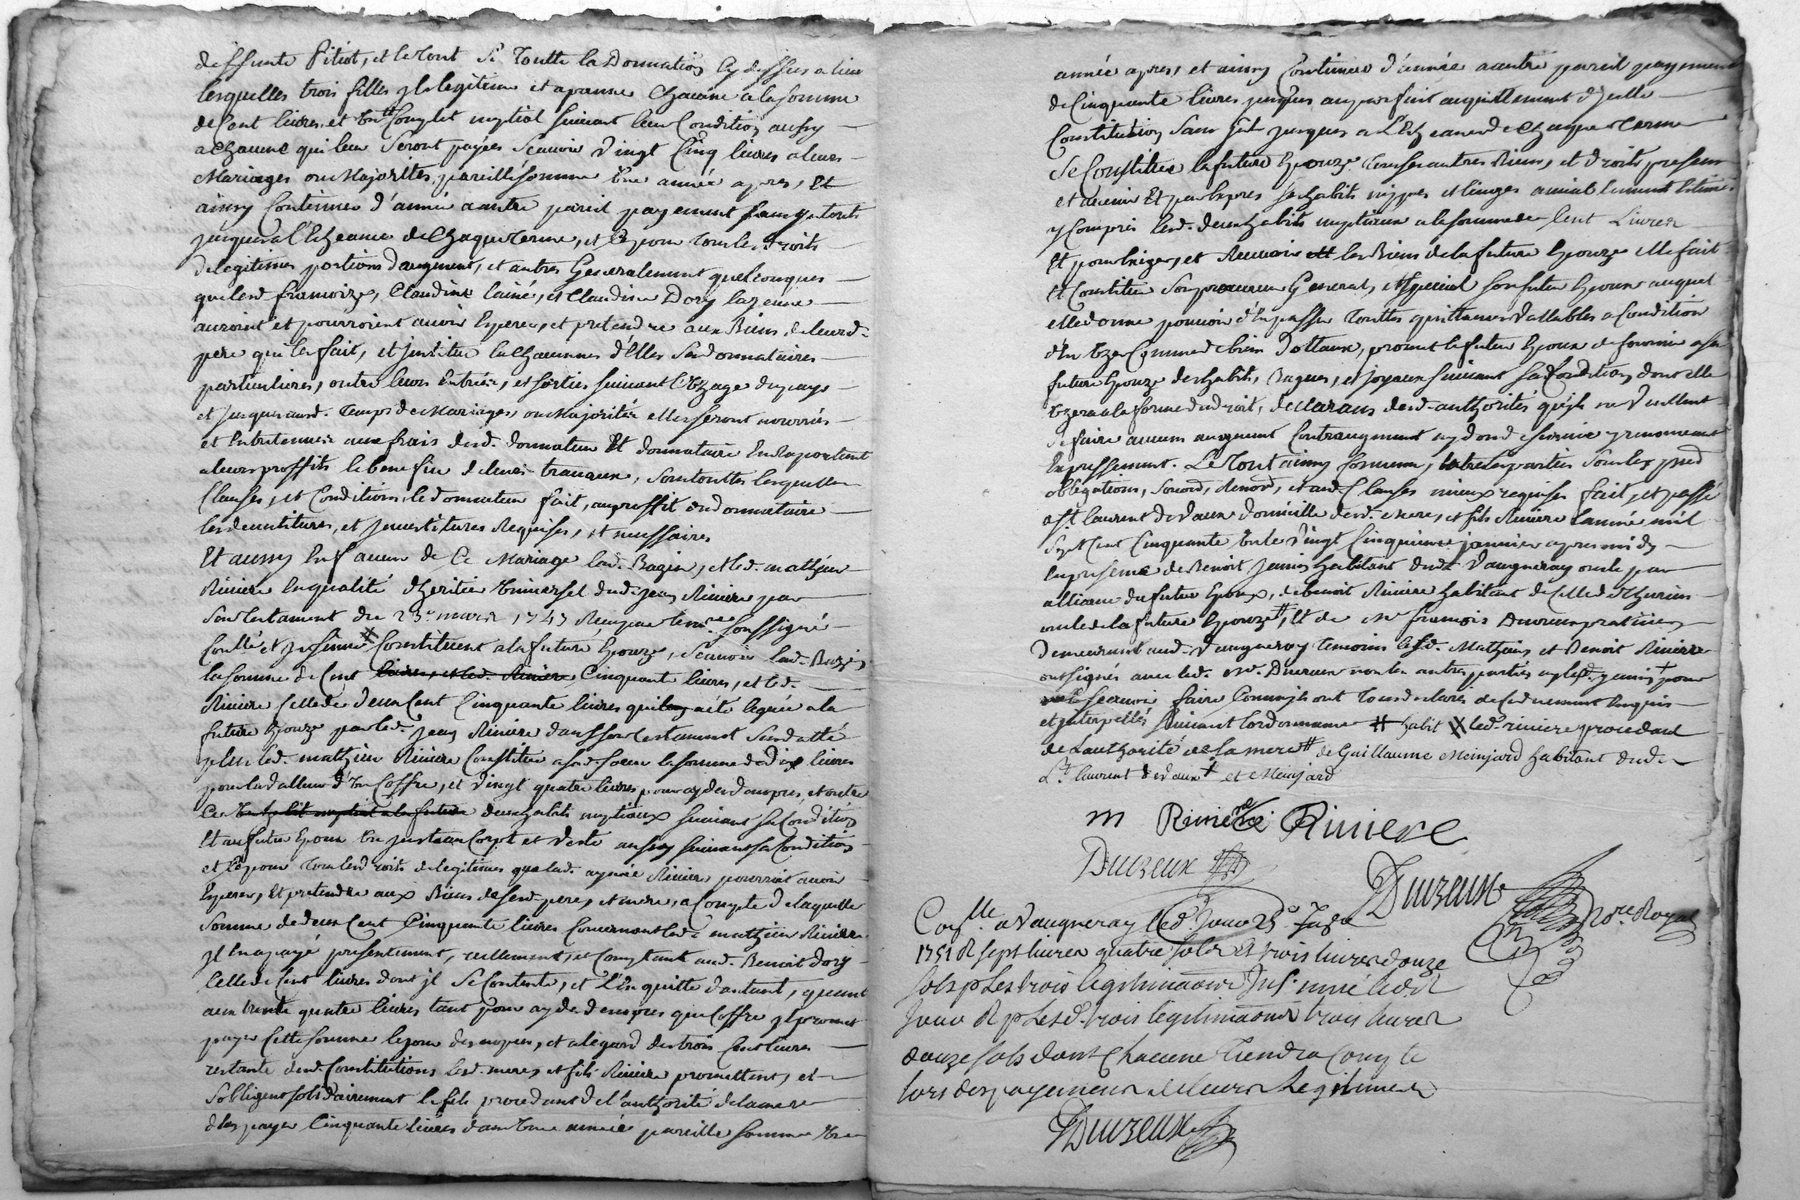 deffunte Pitiot, et le tout de toutte la Donnation cy dessus a lieu
lesquelles trois filles il legitime et apanne chacune a la somme
de Cent livres et un Complet nuptial suivant leur Condition aussy
a chacune qui leur seront payées scavoir vingt Cinq livres a leurs
Mariages ou Majorités, pareille somme une année apres, Et
ainsy Continuer d'année a autre pareil payement sans interets
jusques a l'Echeance de Chaque terme, et ce pour tous les droits
de legitimes portions d'augment, et autres Generalement quelconques
que lesd. francoize, Claudine l'ainé, et Claudine Dory la jeune
auroint et pourroient avoir Esperer, et pretendre aux Biens de leurd.
pere qui les fait, et institue la Chacunnes d'Elles ses donnataires
particulieres, outre leurs Entrées, et sorties suivant l'Uzage du pays
et jusques aud. temps de Mariages, ou Majorités elles seront nourries
et Entretenues aux frais desd. donnateur Et donnataire En Raportant
a leurs proffits le benefice de leurs travaux, sous touttes lesquelles
Clauses, et Conditions le donnateur fait, au proffit du donnataire
les demititures, et investitures Requises, et necessaires
Et aussy En faveur de Ce Mariage lad. Bazin, et led. mathieu
Riviere En qualité d'heritier Universel dud. jean Riviere par
son testament du 23e. mars 1747 Recu par le no.re soussigné
Conllé et insinué # Constituent a la future Epouze, scavoir lad. Bazin
la somme de Cent livres, et led. Riviere Cinquante livres, et led.
Riviere Celle de deux Cent Cinquante livres qui luy a été leguée a la
future Epouze par led. jean Riviere dans son testament susdatté
plus led. mathieu Riviere Constitue a sad. soeur la somme de dix livres
pour la valleur d'un Coffre, et vingt quatre livres pour ayde d'empres, et outre
Ce un habit nuptial a la future deux habits nuptiaux suivant sa Condition
Et au futur Epoux un juste au Corps et veste aussy suivant sa Condition
et Ce pour tous les droits de legitimes que lad. aymée Riviere pourroit avoir
Esperer, Et pretendre aux Biens de ses d. pere, et mere, a Compte de laquelle
somme de deux Cent Cinquante livres Concernant led. mathieu Riviere
Il En a payé presentement, reellement, et Comptant aud. Benoit Dory
Celle de Cent livres dont il se Contente, et l'En quitte d'autant, quant
aux trente quatre livres tant pour ayde d'empres que Coffre il promet
payer Cette somme le jour des nopces, et a legard des trois Cent livres
restante desd. Constitutions lesd. meres et fils Riviere promettent, et
s'obligent solidairement le fils procedant de l'authorité de la mere
de les payer Cinquante livres dans une année pareille somme une
année apres, et ainsy Continuer d'année a autre pareil payement
de Cinquante livres jusques au parfait acquittement d'jcelle
Constitution sans jnt. jusques a l'Echeance de Chaque terme
se Constitue la future Epouze tous ses autres Biens, et droits presens
et avenir Et par Expres ses habits nippes et linges amiablement Estimé
y Compris lesd. deux habits nuptiaux a la somme de Cent Livres
Et pour Exiger, et Recevoir les Biens de la future Epouze elle fait
Et Constitue son procureur General, et special son futur Epoux auquel
elle donne pouvoir d'En passer touttes quittances vallables a Condition
d'En Uzer Comme de biens Dottaux, promet le futur Epoux de fournir a sa
future Epouze des habits, Bagues, et joyaux suivant sa Condition dont elle
Uzera a la forme du droit, declarans desd. authorités qu'ils ne veullent
se faire aucuns augment Contraugment ny don de survie y renonceant
Expressement. Le Tout ainsy Convenu, Entre les parties sous les pred
obligations, soumo.ns, renon.ns, et aud. Clauses mieux requises fait, et passé
a St. laurent de Vaux domicille desd. mere, et fils Riviere l'année mil
sept Cent Cinquante Un le vingt Cinquieme janvier apres midy
En presence de Benoit Jamin habitant dud. Vaugneray oncle par
alliance du futur Epoux, de benoit Riviere habitant de Celle d'Thurins
oncle de la future Epouze #, Et de Me. francois Duvreux praticien
Demeurant aud. Vaugneray temoins lesd. Mathieu et Benoit Riviere
ont signés avec led. Me. Duvreux non les autres parties ny led. jamin + pour
ne scavoir faire Comme ils ont tous declarés de Ce duement Enquis
et jnterpellés suivant l'ordonnance # habit # led. riviere procedant
de L'authorité de sa mere # de Guillaume Meinjard habitant dud.
St. laurent de Vaux + et Meinjard
m Riviere Riviere
Duvreux
Duvreux No.re Royal
Con.lle a Vaugneray led. jour 25e Janv.
1751 R sept livres quatre sols et trois livres douze
sols p les trois legitimaoins Ins. inué led.
jour R p lesd. trois legitimaoins trois livres
douze sols dont Chacune tiendra Compte
lors des payemens de leurs Legitimes
Duvreux